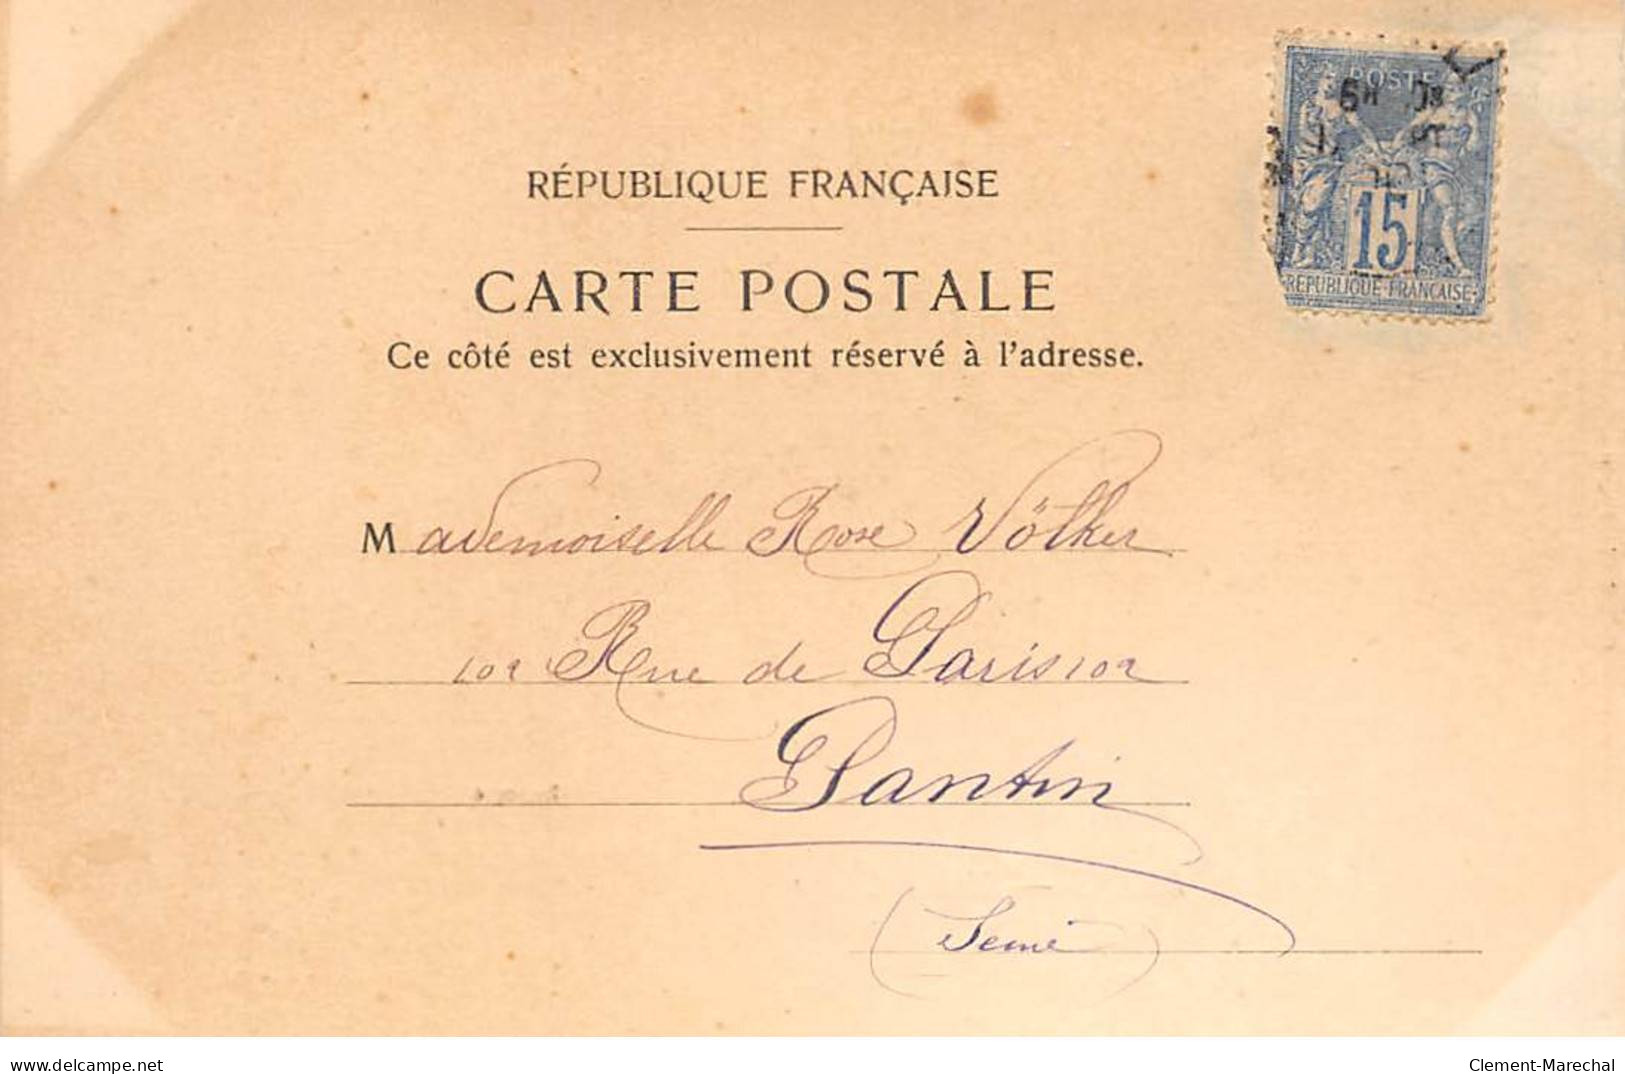 POSTE
15
RÉPUBLIQUE FRANÇAISE
RÉPUBLIQUE FRANÇAISE
CARTE POSTALE
Ce côté est exclusivement réservé à l'adresse.
Mademoiselle Rose Völker
102 Rue de Paris 102
Pantin
(Seine)
delcampe.net
Clement-Marechal